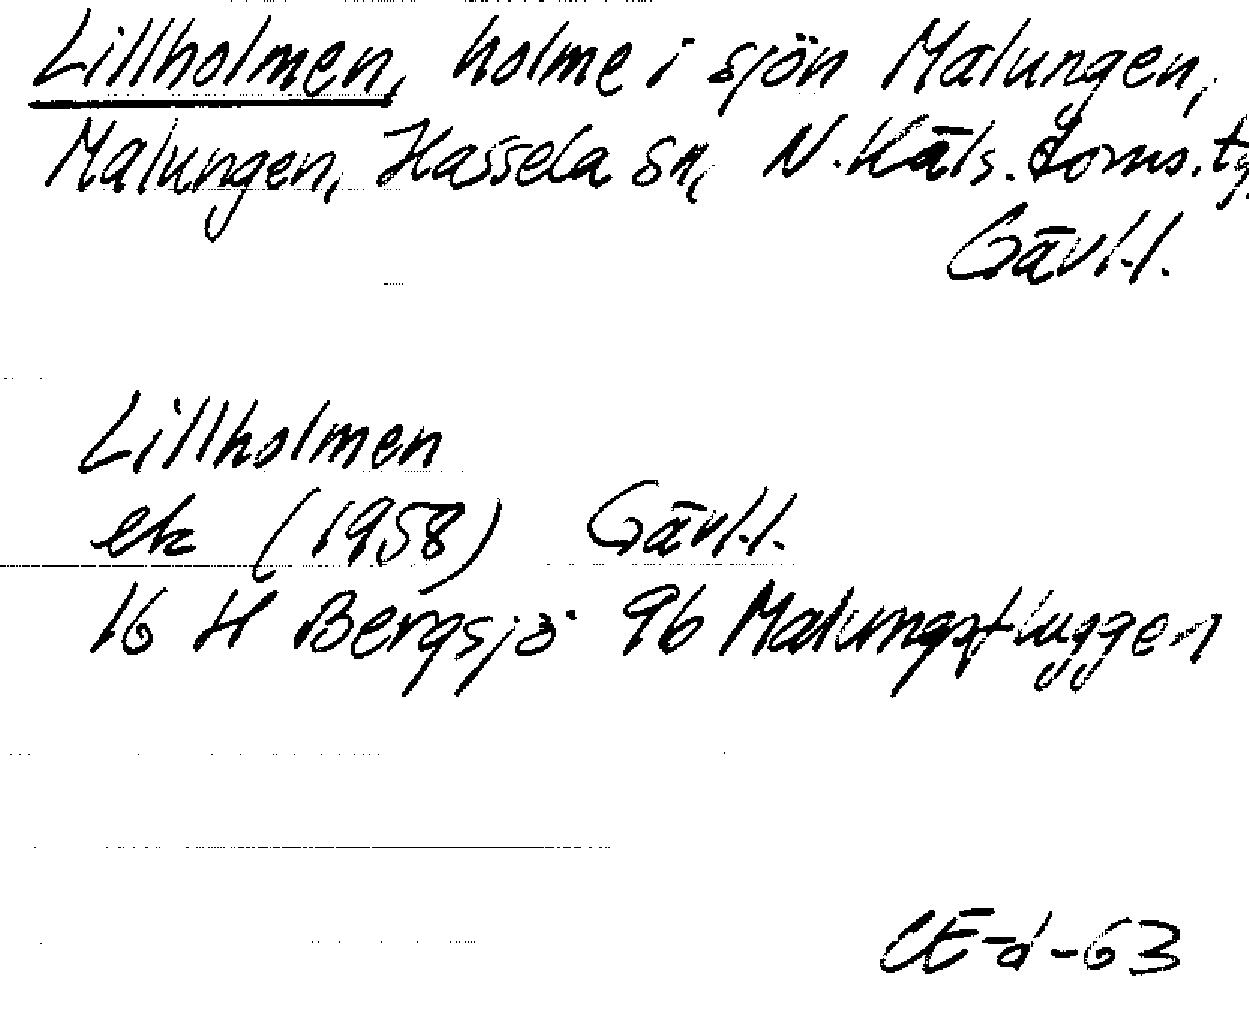 Lillholmen, holme i sjön Malungen,
Malungen, Hassela sn, N. Häls. doms. tg,
Gävl.l.
Lillholmen
ek (1958) Gävl.l.
16 H Bergsjö 9b Malungsfluggen
CE-d-63